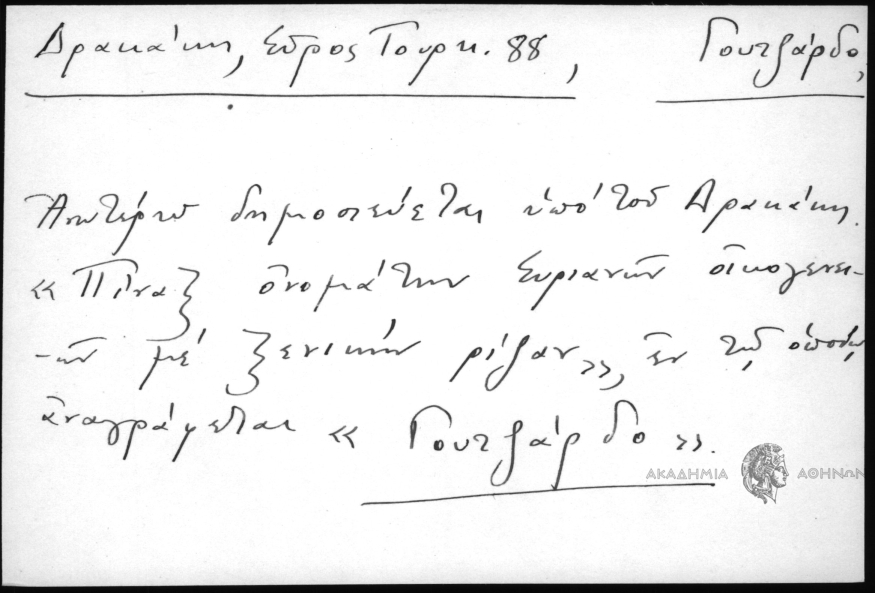 Δρακάκη, Σῦρος Τουρκ. 88, Γουτζάρδο,
Ἀνωτέρω δημοσιεύεται ὑπό τοῦ Δρακάκη
« Πῖναξ ὀνομάτων Συριανῶν οἰκογενει-
-ῶν μέ ξενικήν ρίζαν», ἐν τῷ ὁποίῳ
ἀναγράφεται « Γουτζάρδο ».
ΑΚΑΔΗΜΙΑ ΑΘΗΝΩΝ